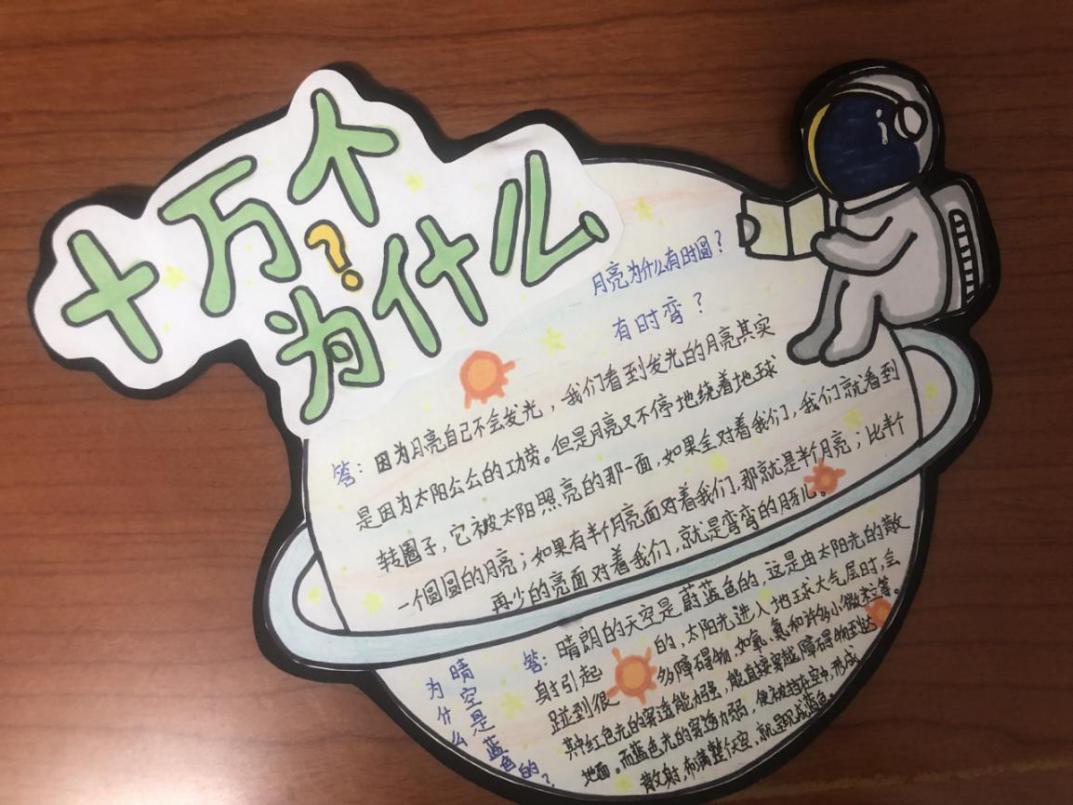 十万个
?
为什么
月亮为什么有时圆?
有时弯?
答:因为月亮自己不会发光,我们看到发光的月亮其实
是因为太阳公公的功劳。但是月亮又不停地绕着地球
转圈子,它被太阳照亮的那一面,如果全对着我们,我们就看到
一个圆圆的月亮;如果有半个月亮面对着我们,那就是半个月亮;比半个
再少的亮面对着我们,就是弯弯的月牙儿。
晴空是蓝色的?
为什么
答:晴朗的天空是蔚蓝色的,这是由太阳光的散
射引起的,太阳光进入地球大气层时,会
碰到很多障碍物,如氧、氮和许多小微粒等。
其中红色光的穿透能力强,能直接穿越障碍物到达
地面。而蓝色光的穿透力弱,便被挡在空中,形成
散射,布满整个天空,就呈现成蓝色。